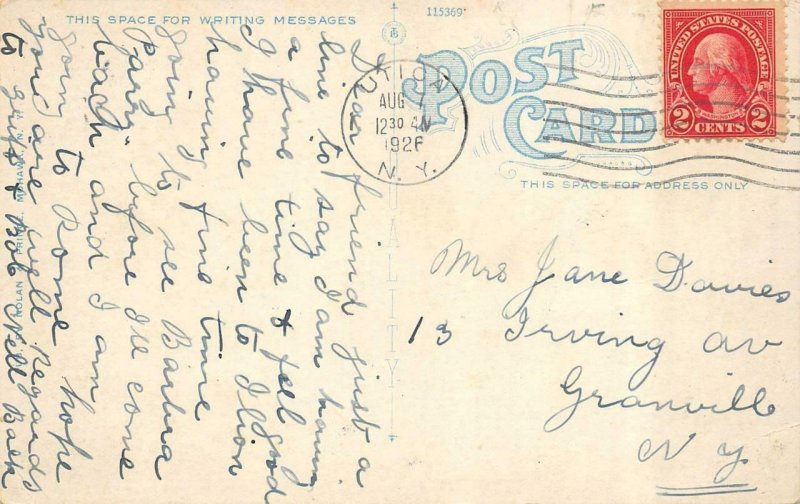 THIS SPACE FOR WRITING MESSAGES
115369
POST
CARD
THIS SPACE FOR ADDRESS ONLY
UNITED STATES POSTAGE
WASHINGTON
2 CENTS 2
ILION
AUG
1230
1926
N.Y.
QUALITY
NOLAN MOHAWK, N.Y.
Dear friend just a
line to say I am having
a fine time & feel good
I have been to Ilion
having fine time
going to see Barbra
Parry before I'll come
back and I am
going to Rome hope
you are well Regards
to Griff & Bob Nell
Mrs Jane Davies
13 Irving av
Granville
N Y